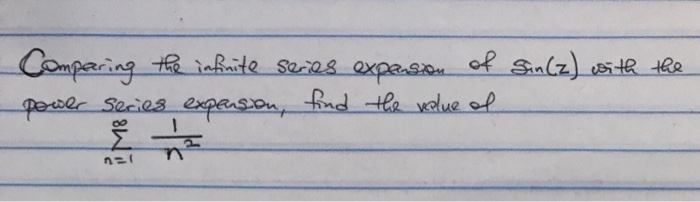 Comparing the infinite series expansion of sin(z) with the
power series expansion, find the value of
∞
Σ 1/n²
n=1